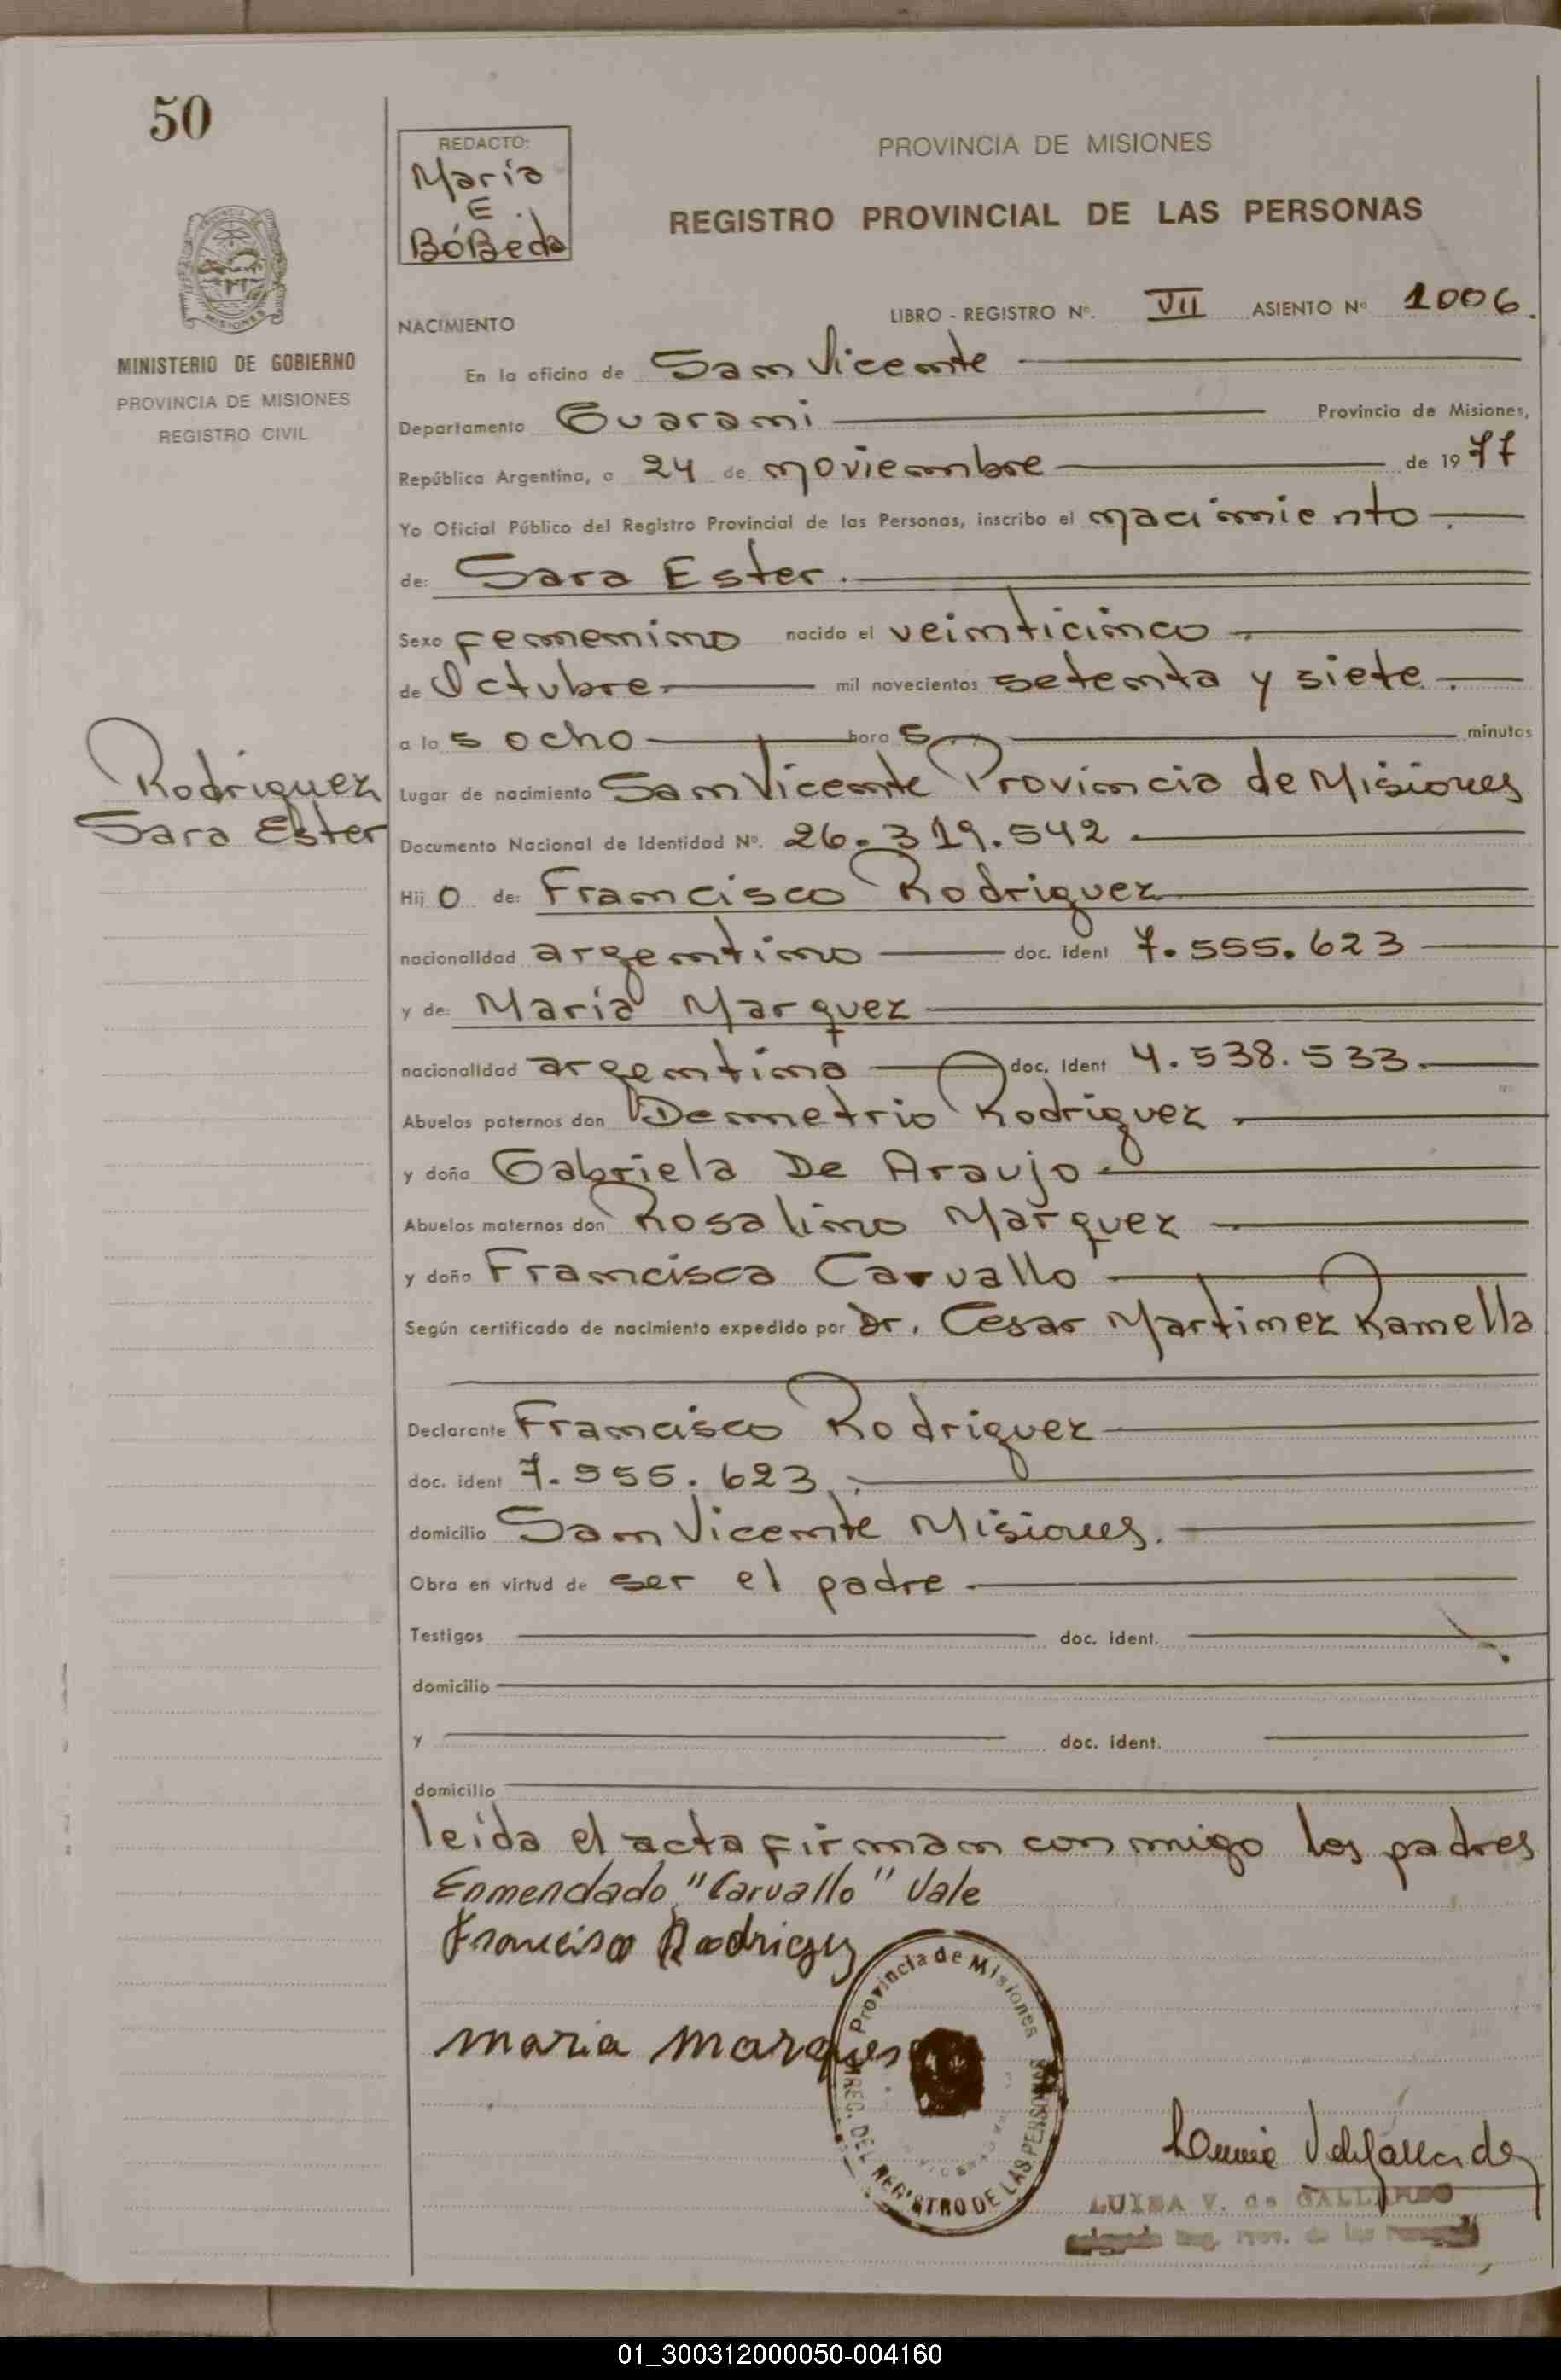 50
REDACTO:
Maria
E.
BóBeda
PROVINCIA DE MISIONES
REGISTRO PROVINCIAL DE LAS PERSONAS
MISIONES
MINISTERIO DE GOBIERNO
PROVINCIA DE MISIONES
REGISTRO CIVIL
NACIMIENTO
LIBRO - REGISTRO Nº. VII ASIENTO Nº 1006.
En la oficina de San Vicente
Departamento Guarani Provincia de Misiones,
República Argentina, a 24 de noviembre de 1977
Yo Oficial Público del Registro Provincial de las Personas, inscribo el nacimiento.
de: Sara Ester.
Sexo femenino nacido el veinticinco
de Octubre mil novecientos setenta y siete.
a las ocho horas minutos
Rodriguez
Sara Ester
Lugar de nacimiento San Vicente Provincia de Misiones
Documento Nacional de Identidad Nº. 26.319.542
Hijo de: Francisco Rodriguez
nacionalidad argentino doc. ident 7.555.623
y de: Maria Marquez
nacionalidad argentina doc. ident 4.538.533.
Abuelos paternos don Demetrio Rodriguez
y doña Gabriela De Araujo
Abuelos maternos don Rosalino Marquez
y doña Francisca Carvallo
Según certificado de nacimiento expedido por Dr. Cesar Martinez Ramella
Declarante Francisco Rodriguez
doc. ident 7.555.623.
domicilio San Vicente Misiones.
Obra en virtud de ser el padre
Testigos doc. ident.
domicilio
y doc. ident.
domicilio
leida el acta firman conmigo los padres
Enmendado "Carvallo" Vale
Francisco Rodriguez
maria marques
Provincia de Misiones
DEL REGISTRO DE LAS PERSONAS
LUISA V. de GALLARDO
Reg. Prov. de las
01_300312000050-004160